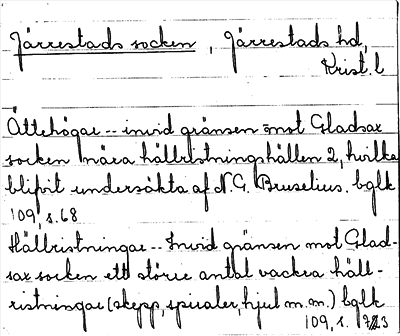 Järrestads socken, Järrestads hd,
Krist. l
Ättehögar -- invid gränsen mot Gladsax
socken nära hällristningshällen 2, hvilka
blifvit undersökta af N.G. Bruselius. bglk
109, s. 68
Hällristningar -- Invid gränsen mot Glad-
sax socken ett större antal vackra häll-
ristningar (skepp, spiraler, hjul m.m.) bglk
109, s.